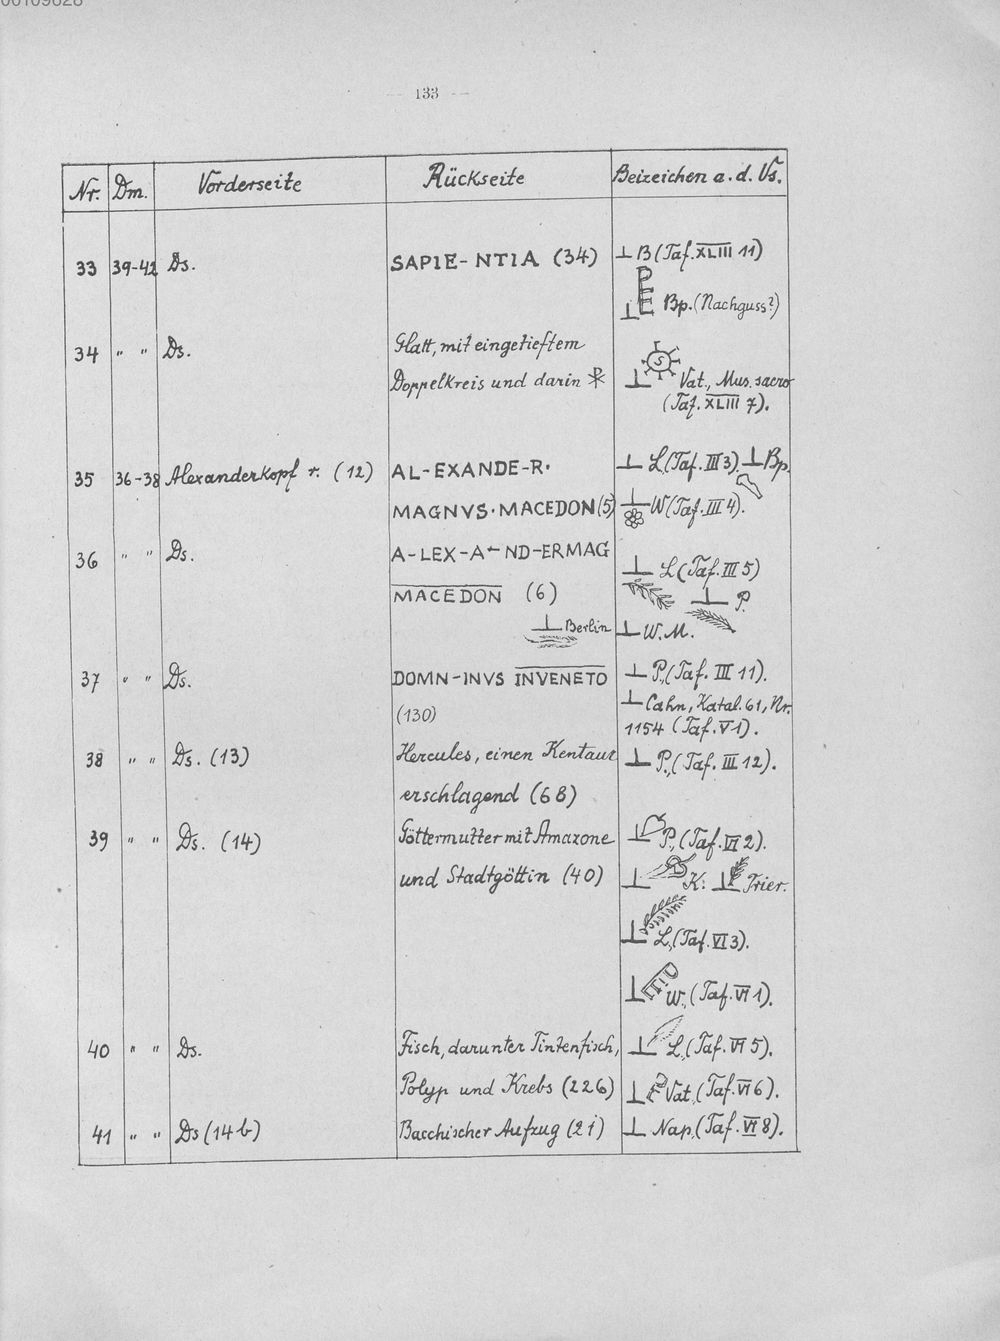 00109828
— 133 —
Nr. Dm. Vorderseite Rückseite Beizeichen a. d. Vs.
33 39-42 Ds. SAPIE-NTIA (34) ⊥ B (Taf. XLIII 11)
⊥ PE Bp. (Nachguss?)
34 " " Ds. Glatt, mit eingetieftem
Doppelkreis und darin ☧ ⊥ S Vat., Mus. sacro
(Taf. XLIII 7).
35 36-38 Alexanderkopf r. (12) AL-EXANDE-R· ⊥ L (Taf. III 3) ⊥ Bp.
MAGNVS·MACEDON (5) ⊥ W (Taf. III 4).
36 " " Ds. A-LEX-A-ND-ERMAG ⊥ L (Taf. III 5)
MACEDON (6) ⊥ P.
⊥ Berlin ⊥ W. M.
37 " " Ds. DOMN-INVS INVENETO ⊥ P., (Taf. III 11).
(130) ⊥ Cahn, Katal. 61, Nr.
1154 (Taf. V 1).
38 " " Ds. (13) Hercules, einen Kentaur ⊥ P., (Taf. III 12).
erschlagend (68)
39 " " Ds. (14) Göttermutter mit Amazone ⊥ P., (Taf. VI 2).
und Stadtgöttin (40) ⊥ K: ⊥ Trier.
⊥ L, (Taf. VI 3).
⊥ W., (Taf. VI 1).
40 " " Ds. Fisch, darunter Tintenfisch, ⊥ L, (Taf. VI 5).
Polyp und Krebs (226) ⊥ Vat, (Taf. VI 6).
41 " " Ds (14b) Bacchischer Aufzug (21) ⊥ Nap, (Taf. VI 8).